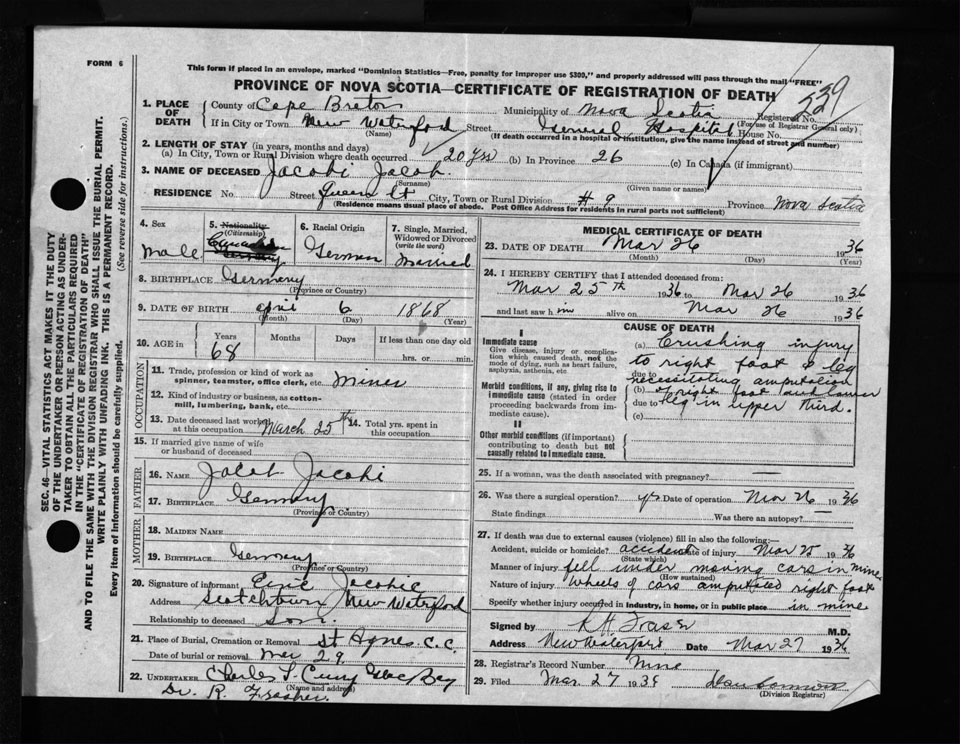 FORM 6
This form if placed in an envelope, marked "Dominion Statistics—Free, penalty for improper use $300," and properly addressed will pass through the mail "FREE"
PROVINCE OF NOVA SCOTIA—CERTIFICATE OF REGISTRATION OF DEATH
339
1. PLACE OF DEATH County of Cape Breton Municipality of Nova Scotia Registered No. (For use of Registrar General only)
If in City or Town New Waterford (Name) Street General Hospital House No.
(If death occurred in a hospital or institution, give the name instead of street and number)
2. LENGTH OF STAY (in years, months and days)
(a) In City, Town or Rural Division where death occurred 20 yrs (b) In Province 26 (c) In Canada (if immigrant)
3. NAME OF DECEASED Jacobi Jacob.
(Surname) (Given name or names)
RESIDENCE No Street Queen St City, Town or Rural Division # 9 Province Nova Scotia
(Residence means usual place of abode. Post Office Address for residents in rural parts not sufficient)
4. Sex Male
5. Nationality (Citizenship) Canadian
6. Racial Origin German
7. Single, Married, Widowed or Divorced (write the word) Married
8. BIRTHPLACE Germany
(Province or Country)
9. DATE OF BIRTH April 6 1868
(Month) (Day) (Year)
10. AGE in Years 68 Months Days If less than one day old hrs. or min.
OCCUPATION
11. Trade, profession or kind of work as spinner, teamster, office clerk, etc. Miner
12. Kind of industry or business, as cotton-mill, lumbering, bank, etc.
13. Date deceased last worked at this occupation March 25th 14. Total yrs. spent in this occupation
15. If married give name of wife or husband of deceased
FATHER
16. NAME Jacob Jacobi
17. BIRTHPLACE Germany
(Province or Country)
MOTHER
18. MAIDEN NAME
19. BIRTHPLACE Germany
(Province or Country)
20. Signature of informant Jacobie
Address Scotchtown, New Waterford
Relationship to deceased Son.
21. Place of Burial, Cremation or Removal St Agnes C.C.
Date of burial or removal Mar 29
22. UNDERTAKER Charles L. Curry Glace Bay
(Name and address)
Dr. R.
MEDICAL CERTIFICATE OF DEATH
23. DATE OF DEATH Mar 26 1936
(Month) (Day) (Year)
24. I HEREBY CERTIFY that I attended deceased from:
Mar 25th 1936 to Mar 26 1936
and last saw him alive on Mar 26 1936
CAUSE OF DEATH
I
Immediate cause
Give disease, injury or complication which caused death, not the mode of dying, such as heart failure, asphyxia, asthenia, etc.
Morbid conditions, if any, giving rise to immediate cause (stated in order proceeding backwards from immediate cause).
II
Other morbid conditions (if important) contributing to death but not causally related to immediate cause.
(a) Crushing injury
to right foot & leg
due to necessitating amputation
(b) of right foot and lower
due to leg in upper third.
(c)
25. If a woman, was the death associated with pregnancy? —
26. Was there a surgical operation? yes Date of operation Mar 26 1936
State findings Was there an autopsy?
27. If death was due to external causes (violence) fill in also the following:—
Accident, suicide or homicide? accident Date of injury Mar 25 1936
(State which)
Manner of injury fell under moving cars in mine.
(How sustained)
Nature of injury Wheels of cars amputated right foot
Specify whether injury occurred in industry, in home, or in public place in mine
Signed by K H Fraser M.D.
Address New Waterford Date Mar 27 1936
28. Registrar's Record Number
29. Filed Mar. 27 1936
(Division Registrar)
SEC. 46—VITAL STATISTICS ACT MAKES IT THE DUTY
OF THE UNDERTAKER OR PERSON ACTING AS UNDER-
TAKER TO OBTAIN ALL THE PARTICULARS REQUIRED
IN THE "CERTIFICATE OF REGISTRATION OF DEATH"
AND TO FILE THE SAME WITH THE DIVISION REGISTRAR WHO SHALL ISSUE THE BURIAL PERMIT.
WRITE PLAINLY WITH UNFADING INK. THIS IS A PERMANENT RECORD.
Every item of Information should be carefully supplied. (See reverse side for instructions.)